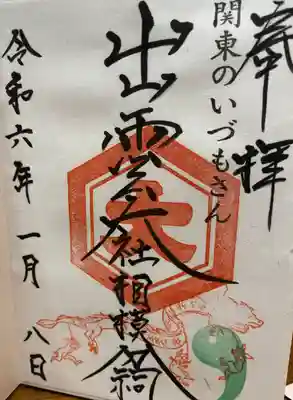 奉拝
関東のいづもさん
出雲大社相模分祠
大
令和六年一月八日